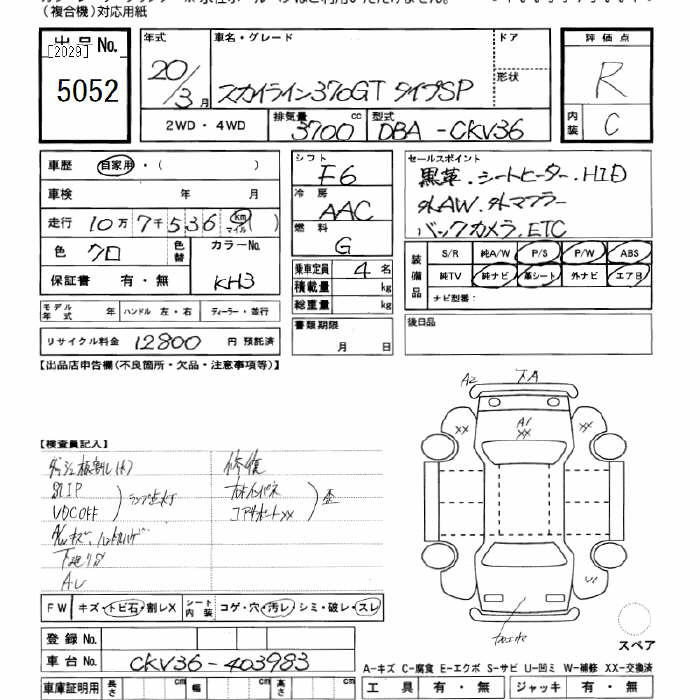 （複合機）対応用紙
出品No.
[2029]
5052
年式
20/3月
車名・グレード
スカイライン370GT タイプSP
ドア
形状
2WD・4WD
排気量
3700 cc
型式
DBA-CKV36
評価点
R
内装
C
車歴
自家用・( )
車検 年 月
走行 10万7千536 km マイル( )
色 クロ
色替
カラーNo.
KH3
保証書 有・無
モデル年式 年
ハンドル 左・右
ディーラー・並行
リサイクル料金 12800 円 預託済
シフト
F6
冷房
AAC
燃料
G
乗車定員 4 名
積載量 kg
総重量 kg
書類期限
月 日
セールスポイント
黒革.シートヒーター.HID
外AW.外マフラー
バックカメラ.ETC
装備品
S/R 純A/W P/S P/W ABS
純TV 純ナビ 革シート 外ナビ エアB
ナビ型番：
後日品
【出品店申告欄(不良箇所・欠品・注意事項等)】
【検査員記入】
SLIP
VDC OFF
ランプ点灯
修復
コアサポートXX
歪
A2
A1
XX
XX
XX
FW キズ・トビ石・割レX
シート内装 コゲ・穴・汚レ・シミ・破レ・スレ
登録No.
車台No. CKV36-403983
車庫証明用 長さ cm 幅 cm 高さ cm
スペア
A-キズ C-腐食 E-エクボ S-サビ U-凹ミ W-補修 XX-交換済
工具 有・無 ジャッキ 有・無